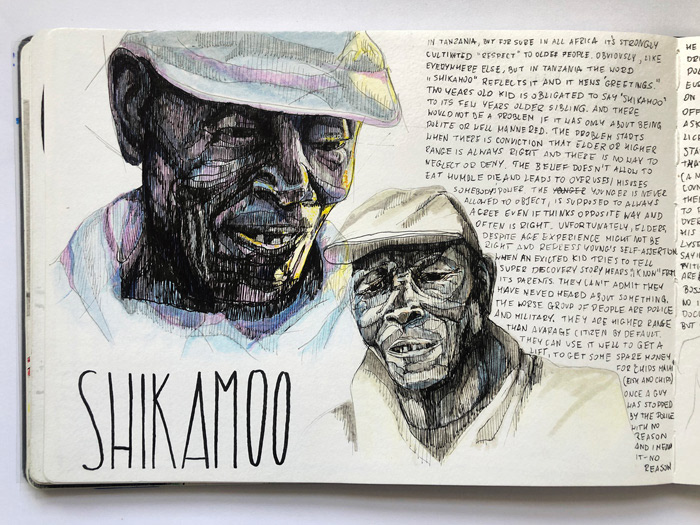 IN TANZANIA, BUT FOR SURE IN ALL AFRICA IT'S STRONGLY
CULTIVATED "RESPECT" TO OLDER PEOPLE. OBVIOUSLY, LIKE
EVERYWHERE ELSE, BUT IN TANZANIA THE WORD
"SHIKAMOO" REFLECTS IT AND IT MENS "GREETINGS."
TWO YEARS OLD KID IS OBLIGATED TO SAY "SHIKAMOO"
TO ITS FEW YEARS OLDER SIBLING. AND THERE
WOULD NOT BE A PROBLEM IF IT WAS ONLY ABOUT BEING
POLITE OR WELL MANNERED. THE PROBLEM STARTS
WHEN THERE IS CONVICTION THAT ELDER OR HIGHER
RANGE IS ALWAYS RIGHT AND THERE IS NO WAY TO
NEGLECT OR DENY. THE BELIEF DOESN'T ALLOW TO
EAT HUMBLE PIE AND LEADS TO OVERUSED/MISUSES
SOMEBODY'S POWER. THE YANGER YOUNGER IS NEVER
ALLOWED TO OBJECT, IS SUPPOSED TO ALWAYS
AGREE EVEN IF THINKS OPPOSITE WAY AND
OFTEN IS RIGHT. UNFORTUNATELY, ELDERS,
DESPITE AGE EXPERIENCE MIGHT NOT BE
RIGHT AND REPRESS YOUNG'S SELF-ASSERTION
WHEN AN EXCITED KID TRIES TO TELL
SUPER DISCOVERY STORY HEARS "I KNOW" FROM
IT'S PARENTS. THEY CAN'T ADMIT THEY
HAVE NEVER HEARD ABOUT SOMETHING.
THE WORSE GROUP OF PEOPLE ARE POLICE
AND MILITARY. THEY ARE HIGHER RANGE
THAN AVARAGE CITIZEN BY DEFAULT.
THEY CAN USE IT WELL TO GET A
LIFT, TO GET SOME SPARE MONEY
FOR CHIPS
(FISH AND CHIPS)
ONCE A GUY
WAS STOPPED
BY THE POLICE
WITH NO
REASON
AND I MEAN
IT-NO
REASON
SHIKAMOO